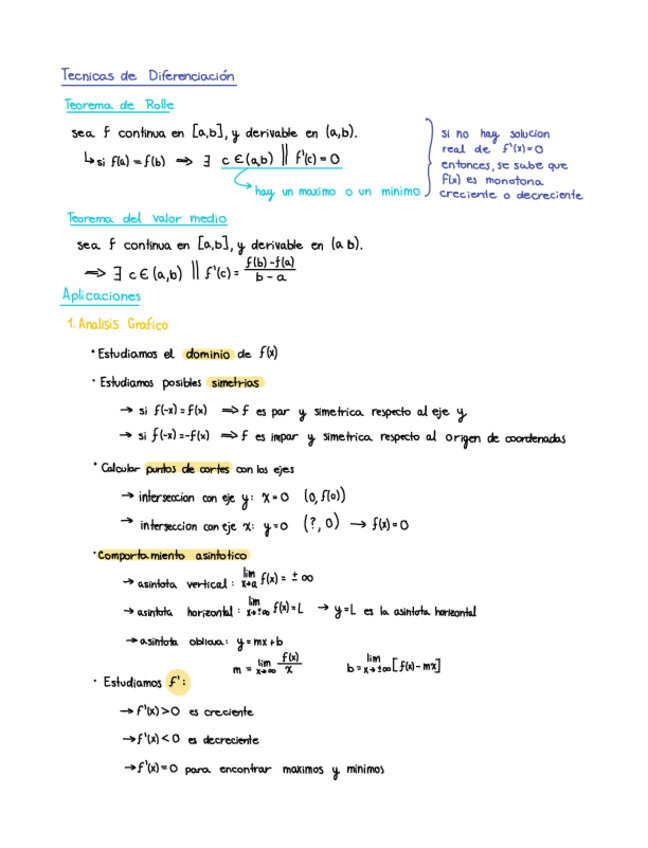 Tecnicas de Diferenciación
Teorema de Rolle
sea f continua en [a,b], y derivable en (a,b).
↳ si f(a) = f(b) ⇒ ∃ c ∈ (a,b) || f'(c) = 0
→ hay un maximo o un minimo
si no hay solucion
real de f'(x)=0
entonces, se sabe que
f(x) es monotona
creciente o decreciente
Teorema del valor medio
sea f continua en [a,b], y derivable en (a b).
⇒ ∃ c ∈ (a,b) || f'(c) = f(b)-f(a) / b-a
Aplicaciones
1. Analisis Grafico
• Estudiamos el dominio de f(x)
• Estudiamos posibles simetrias
→ si f(-x) = f(x) ⇒ f es par y simetrica respecto al eje y
→ si f(-x) = -f(x) ⇒ f es impar y simetrica respecto al origen de coordenadas
• Calcular puntos de cortes con los ejes
→ interseccion con eje y: x = 0 (0, f(0))
→ interseccion con eje x: y = 0 (?, 0) → f(x) = 0
• Comportamiento asintotico
→ asintota vertical: lim x→a f(x) = ± ∞
→ asintota horizontal: lim x→±∞ f(x) = L → y = L es la asintota horizontal
→ asintota oblicua: y = mx + b
m = lim x→∞ f(x) / x b = lim x→±∞ [f(x) - mx]
• Estudiamos f':
→ f'(x) > 0 es creciente
→ f'(x) < 0 es decreciente
→ f'(x) = 0 para encontrar maximos y minimos